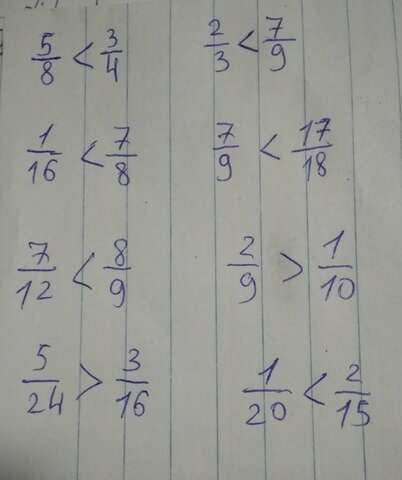 5/8 < 3/4   2/3 < 7/9
1/16 < 7/8   7/9 < 17/18
7/12 < 8/9   2/9 > 1/10
5/24 > 3/16   1/20 < 2/15